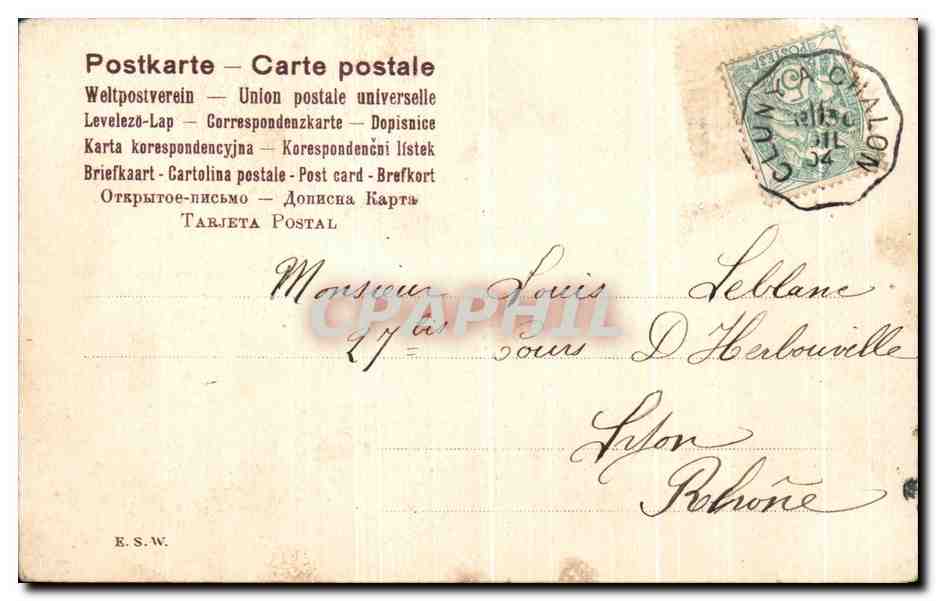 Postkarte – Carte postale
Weltpostverein — Union postale universelle
Levelező-Lap — Correspondenzkarte — Dopisnice
Karta korespondencyjna — Korespondenční lístek
Briefkaart - Cartolina postale - Post card - Brefkort
Открытое-письмо — Дописна Карта
TARJETA POSTAL
POSTES
CLUNY A CHALON
04
Monsieur Louis Leblanc
27 bis Cours D'Herbouville
Lyon
Rhône
CPAPHIL
E. S. W.